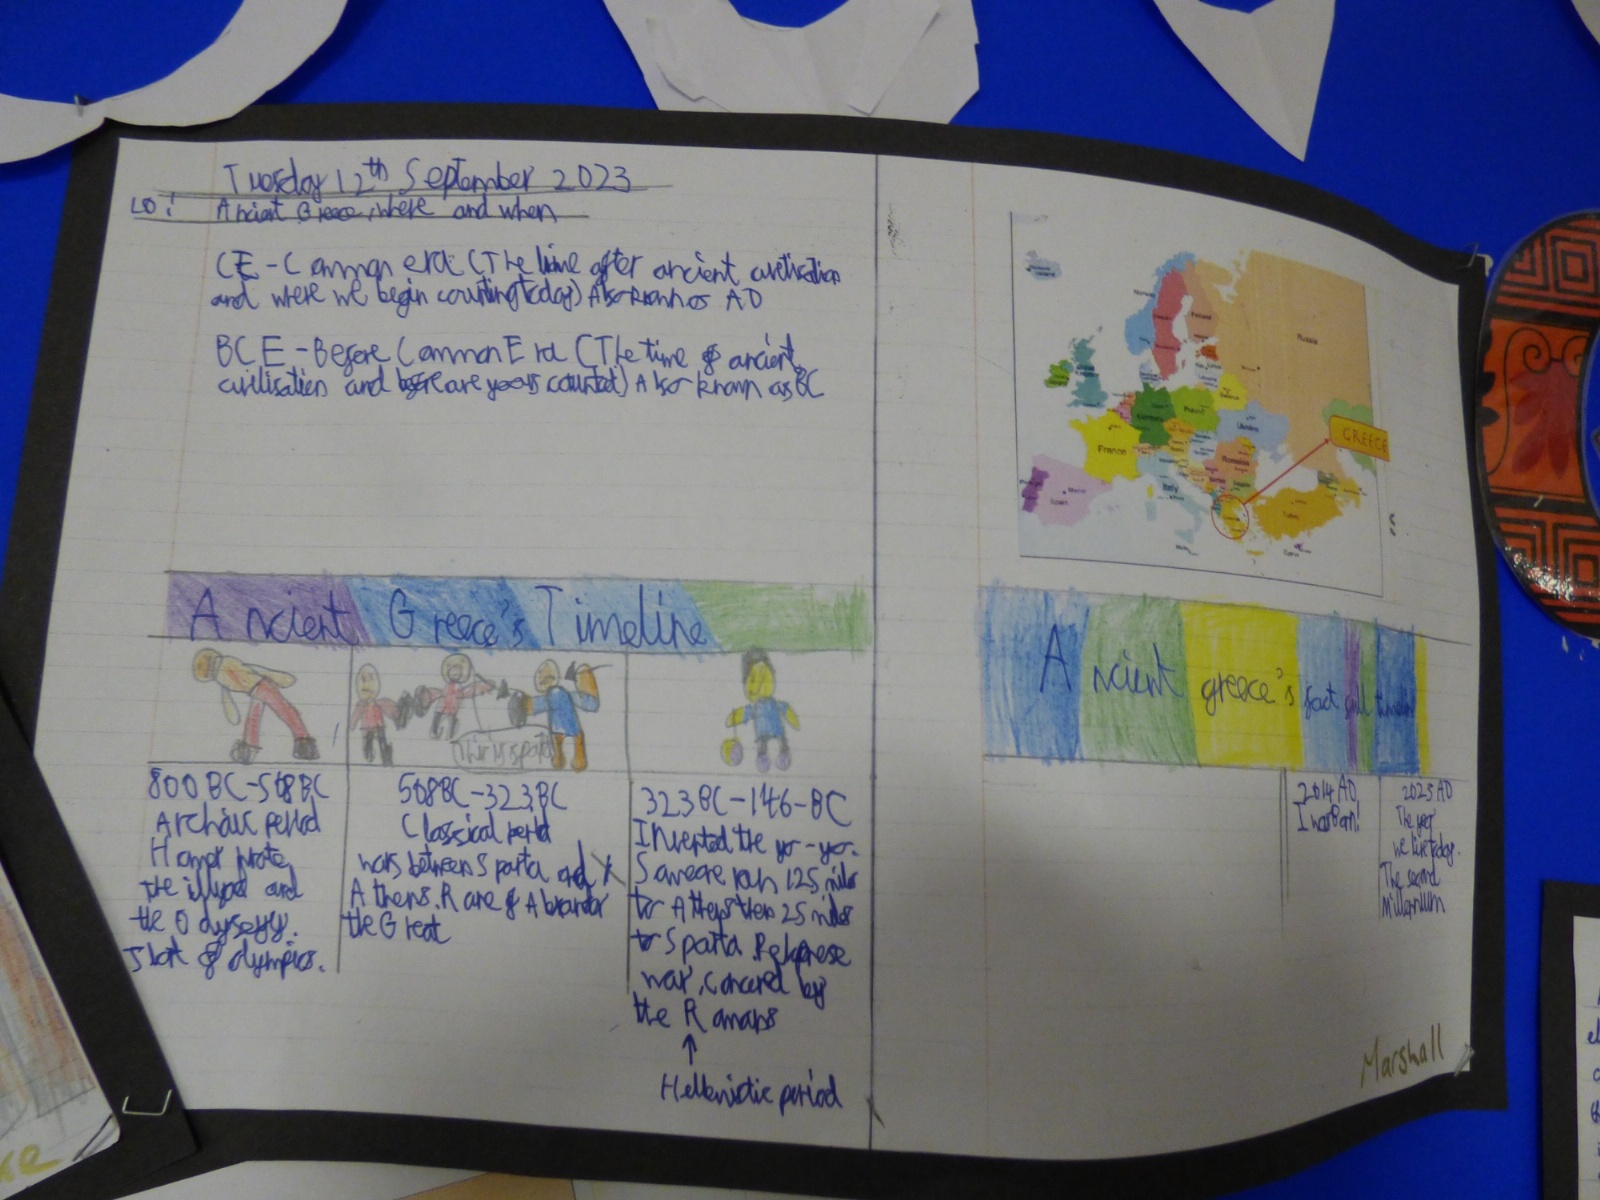 Tuesday 12th September 2023
LO: Ancient Greece, where and when
CE - Common era (The time after ancient civilisation
and where we begin counting today) Also known as AD
BCE - Before Common Era (The time of ancient
civilisation and before are years counted) Also known as BC
Ancient Greece's Timeline
This is sparta
800BC-508BC
Archaic period
Homer wrote
the illyad and
the Odyseyy.
Start of olympics.
508BC-323BC
Classical period
wars between Sparta and
Athens. Rare of
the Great
323BC-146-BC
Invented the yo-yo.
Someone ran 125 miles
to Athens then 25 miles
to Sparta.
war, concered by
the Romans
Hellenistic period
Norway
Finland
Russia
Germany
Poland
Ukraine
France
Romania
Italy
Portugal
Spain
Turkey
GREECE
Ancient greece's fact timeline
2014 AD
I was Born!
2023 AD
The year
we live today.
The second
Millennium
Marshall